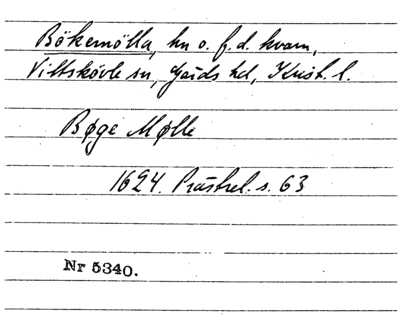 Bökemölla, hn o. f.d. kvarn,
Vittskövle sn, Gärds hd, Krist. l.
Bøge Mølle
1624. Prästrel. s. 63
Nr 5340.